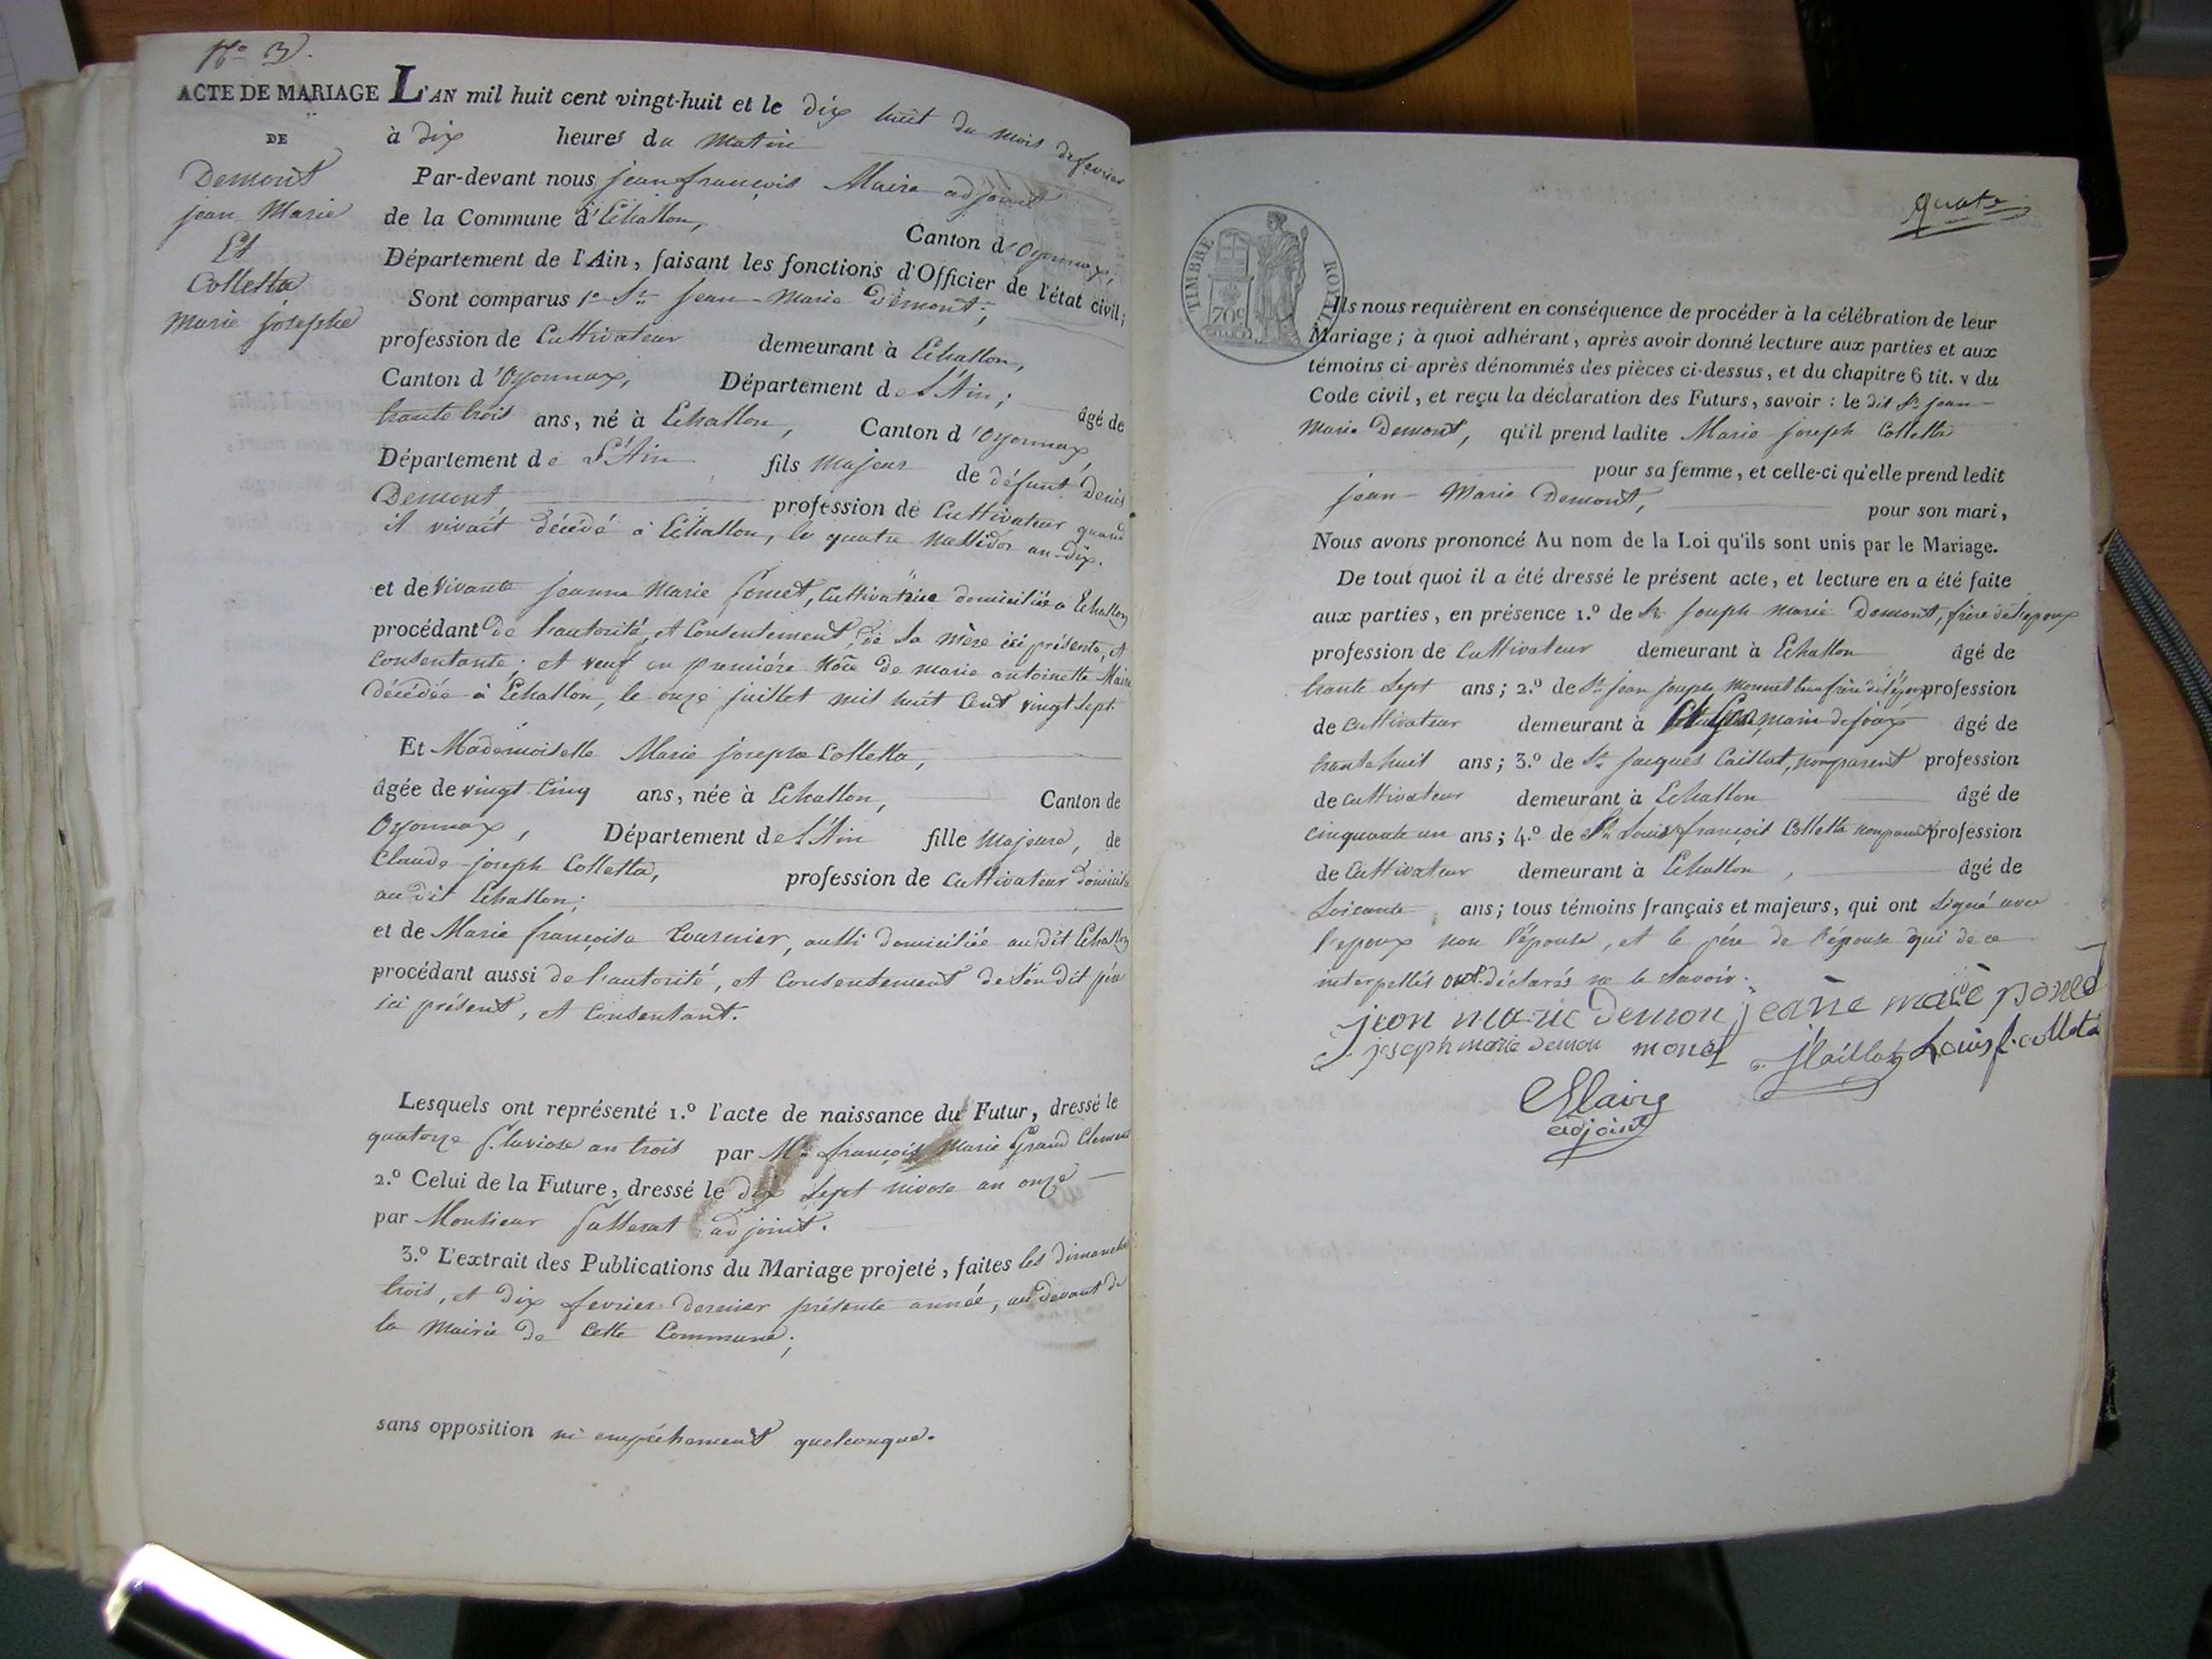 N.º 3.
ACTE DE MARIAGE
DE
Demont
jean Marie
Et
Colletta
Marie josephe
L'AN mil huit cent vingt-huit et le dix huit du mois de fevrier
à dix heures du matin
Par-devant nous jean françois Maire adjoint
de la Commune d'Echallon, Canton d'Oyonnax,
Département de l'Ain, faisant les fonctions d'Officier de l'état civil;
Sont comparus 1º Sr. Jean-Marie Demont,
profession de Cultivateur demeurant à Echallon,
Canton d'Oyonnax, Département de L'Ain; âgé de
trante trois ans, né à Echallon, Canton d'Oyonnax
Département de L'Ain fils majeur de défunt Denis
Demont, profession de Cultivateur quand
il vivait décédé à Echallon, le quatre messidor an dix.
et de vivante jeanne Marie Poncet, Cultivatrice domiciliée a Echallon
procédant de l'autorité, et Consentement, de Sa mère ici présente, et
Consentante; et veuf en première de marie antoinette Maire
décédée à Echallon, le onze juillet mil huit Cent vingt Sept.
Et Mademoiselle Marie josephe Colletta,
âgée de vingt Cinq ans, née à Echallon, Canton de
Oyonnax, Département de L'Ain fille Majeure, de
Claude joseph Colletta, profession de Cultivateur domicilié
au dit Echallon;
et de Marie françoise Tournier, aussi domiciliée au dit Echallon
procédant aussi de l'autorité, et Consentement de Son dit père
ici présent, et Consentant.
Lesquels ont représenté 1.º l'acte de naissance du Futur, dressé le
quatorze Pluviose an trois par Mr. françois Marie Grand Clement
2.º Celui de la Future, dressé le dix Sept nivose an onze
par Monsieur adjoint.
3.º L'extrait des Publications du Mariage projeté, faites les dimanches
trois, et dix fevrier dernier présente année, au devant de
la Mairie de Cette Commune;
sans opposition ni empéchement quelconque.
quatre
TIMBRE ROYAL
70c
Ils nous requièrent en conséquence de procéder à la célébration de leur
Mariage; à quoi adhérant, après avoir donné lecture aux parties et aux
témoins ci-après dénommés des pièces ci-dessus, et du chapitre 6 tit. v du
Code civil, et reçu la déclaration des Futurs, savoir: le dit Sr. jean-
Marie Demont, qu'il prend ladite Marie joseph Colletta
pour sa femme, et celle-ci qu'elle prend ledit
jean-Marie Demont, pour son mari,
Nous avons prononcé Au nom de la Loi qu'ils sont unis par le Mariage.
De tout quoi il a été dressé le présent acte, et lecture en a été faite
aux parties, en présence 1.º de Sr. joseph marie Demont, frère de l'epoux
profession de Cultivateur demeurant à Echallon âgé de
trante Sept ans; 2.º de Sr. jean joseph Monnet beau frère de l'époux profession
de Cultivateur demeurant à St Germain de joux âgé de
trante huit ans; 3.º de Sr. jacques Caillat, non parent profession
de Cultivateur demeurant à Echallon âgé de
cinquante un ans; 4.º de Sr. Louis françois Colletta non parent profession
de Cultivateur demeurant à Echallon, âgé de
Soixante ans; tous témoins français et majeurs, qui ont Signé avec
l'epoux non l'épouse, et le père de l'épouse qui de ce
interpellés ont déclarés ne le Savoir.
jean marie Demon jeanne marie poncet
joseph marie demon monet jCaillat Louis f. colleta
Maire
adjoint